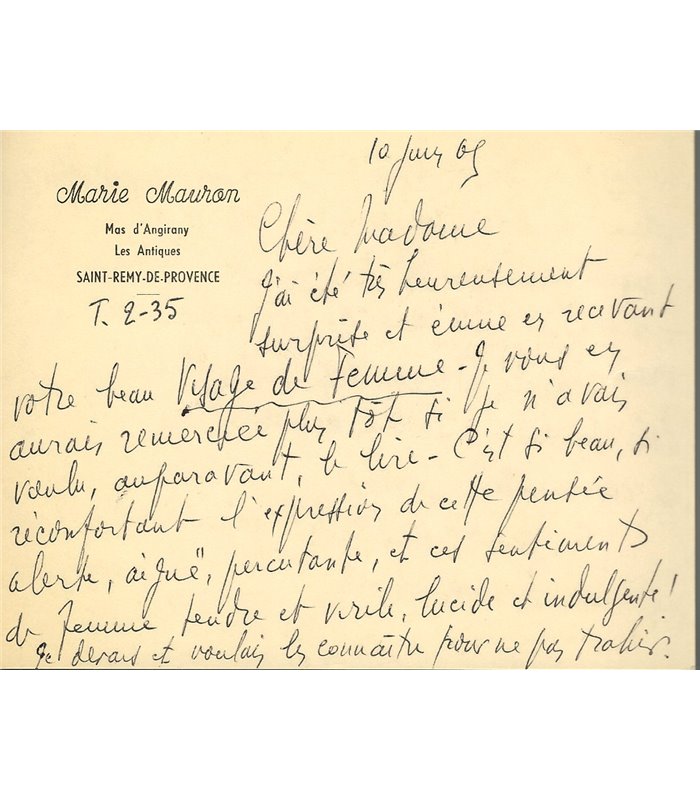 10 juin 65
Marie Mauron
Mas d'Angirany
Les Antiques
SAINT-REMY-DE-PROVENCE
T. 2-35
Chère Madame
J'ai été très heureusement
surprise et émue en recevant
votre beau Visage de Femme - Je vous en
aurais remerciée plus tôt si je n'avais
voulu, auparavant, le lire - C'est si beau, si
réconfortant l'expression de cette pensée
alerte, aiguë, percutante, et ces sentiments
de femme tendre et virile, lucide et indulgente !
Je devais et voulais les connaître pour ne pas trahir.